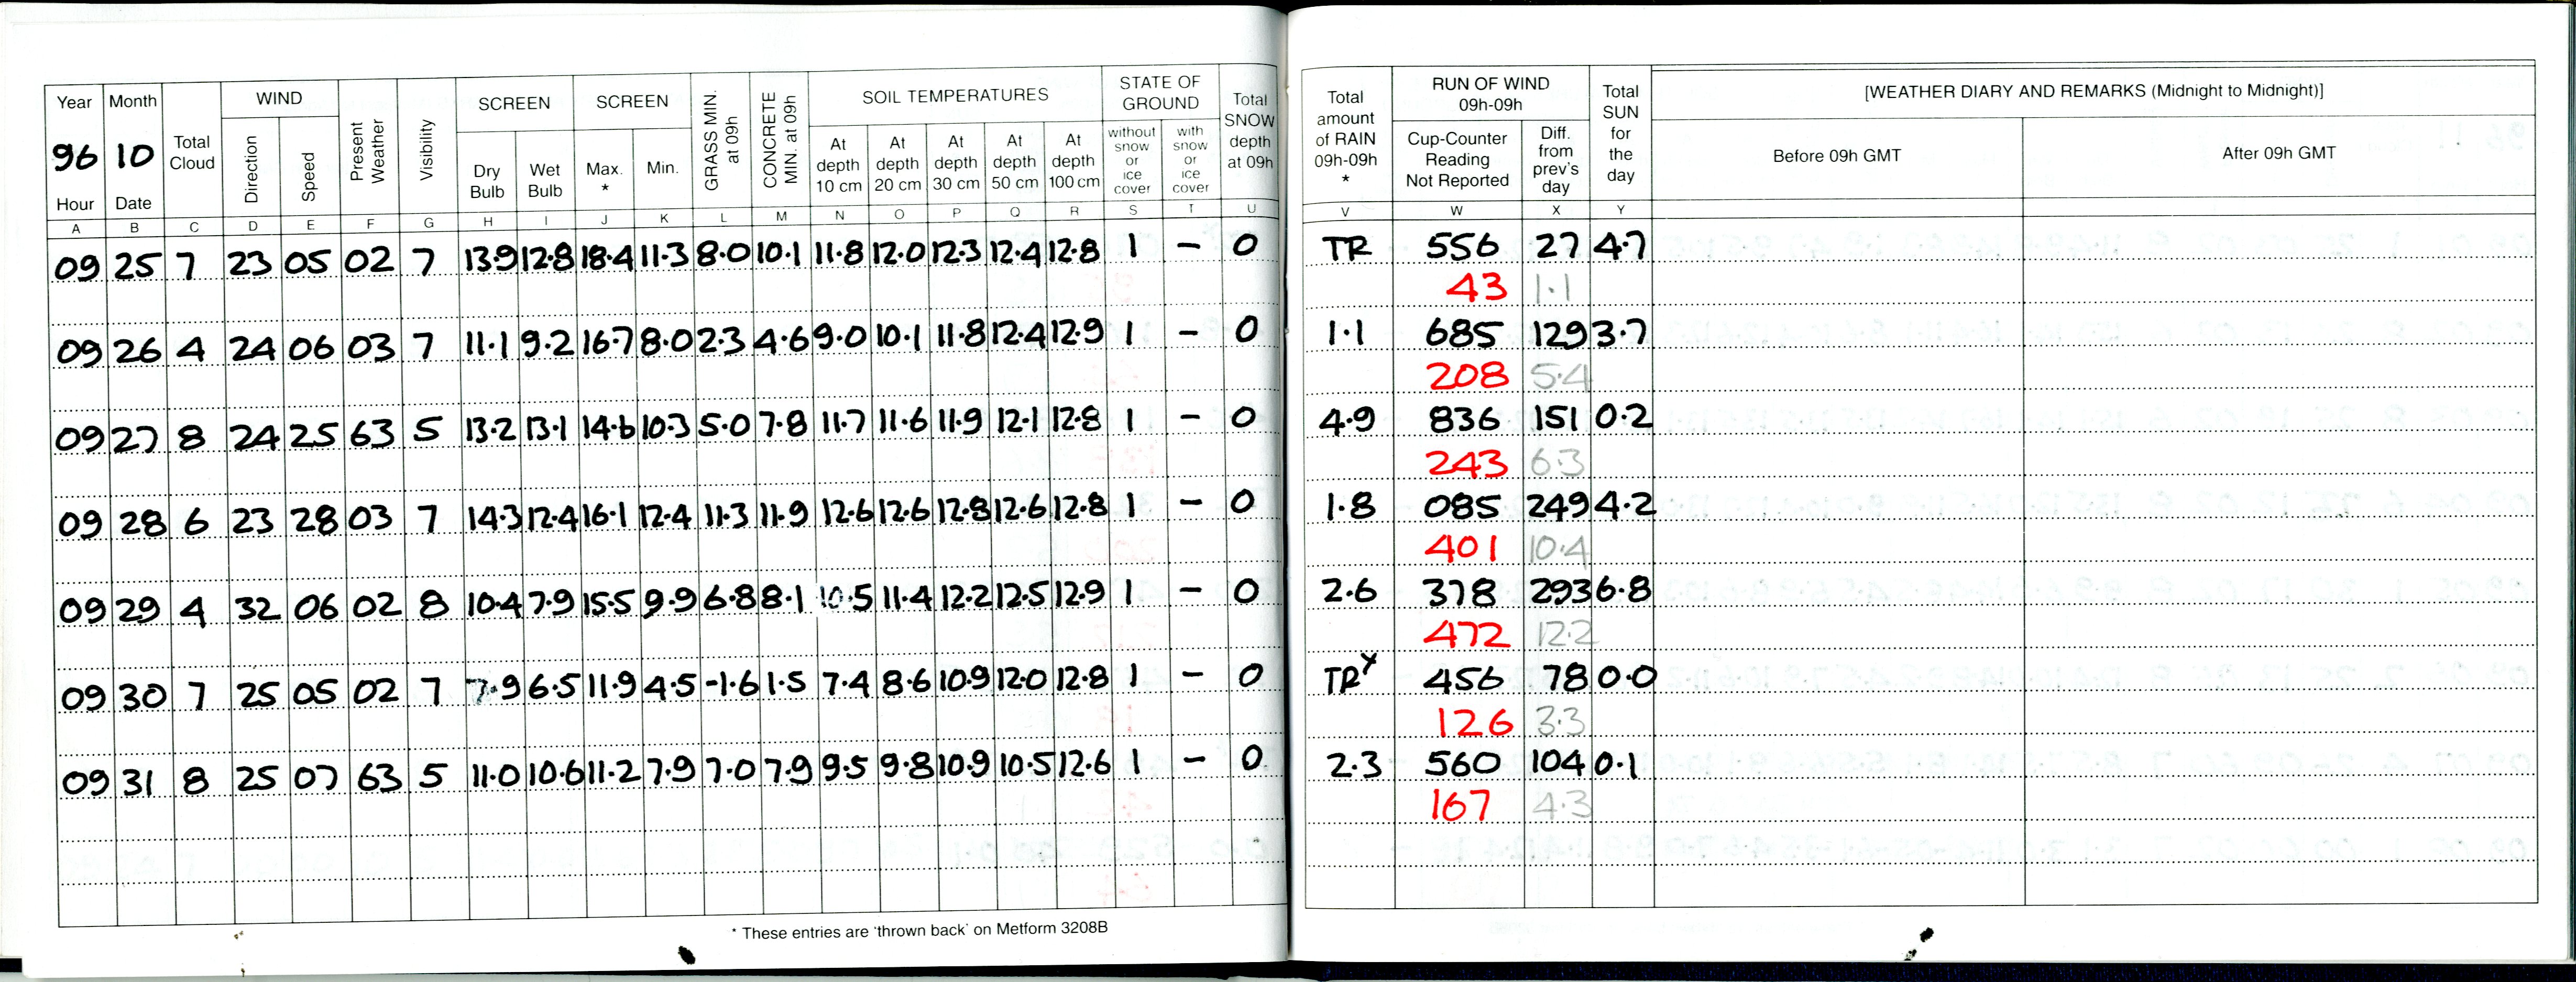 Year Month Total Cloud WIND Present Weather Visibility SCREEN SCREEN GRASS MIN. at 09h CONCRETE MIN. at 09h SOIL TEMPERATURES STATE OF GROUND Total SNOW depth at 09h Total amount of RAIN 09h-09h * RUN OF WIND 09h-09h Total SUN for the day [WEATHER DIARY AND REMARKS (Midnight to Midnight)]
96 10 Direction Speed Dry Bulb Wet Bulb Max. * Min. At depth 10 cm At depth 20 cm At depth 30 cm At depth 50 cm At depth 100 cm without snow or ice cover with snow or ice cover Cup-Counter Reading Not Reported Diff. from prev's day Before 09h GMT After 09h GMT
Hour Date
A B C D E F G H I J K L M N O P Q R S T U V W X Y
09 25 7 23 05 02 7 13.9 12.8 18.4 11.3 8.0 10.1 11.8 12.0 12.3 12.4 12.8 1 – 0 TR 556 27 4.7
43 1.1
09 26 4 24 06 03 7 11.1 9.2 16.7 8.0 2.3 4.6 9.0 10.1 11.8 12.4 12.9 1 – 0 1.1 685 129 3.7
208 5.4
09 27 8 24 25 63 5 13.2 13.1 14.6 10.3 5.0 7.8 11.7 11.6 11.9 12.1 12.8 1 – 0 4.9 836 151 0.2
243 6.3
09 28 6 23 28 03 7 14.3 12.4 16.1 12.4 11.3 11.9 12.6 12.6 12.8 12.6 12.8 1 – 0 1.8 085 249 4.2
401 10.4
09 29 4 32 06 02 8 10.4 7.9 15.5 9.9 6.8 8.1 10.5 11.4 12.2 12.5 12.9 1 – 0 2.6 378 293 6.8
472 12.2
09 30 7 25 05 02 7 7.9 6.5 11.9 4.5 -1.6 1.5 7.4 8.6 10.9 12.0 12.8 1 – 0 TRY 456 78 0.0
126 3.3
09 31 8 25 07 63 5 11.0 10.6 11.2 7.9 7.0 7.9 9.5 9.8 10.9 10.5 12.6 1 – 0 2.3 560 104 0.1
167 4.3
* These entries are 'thrown back' on Metform 3208B